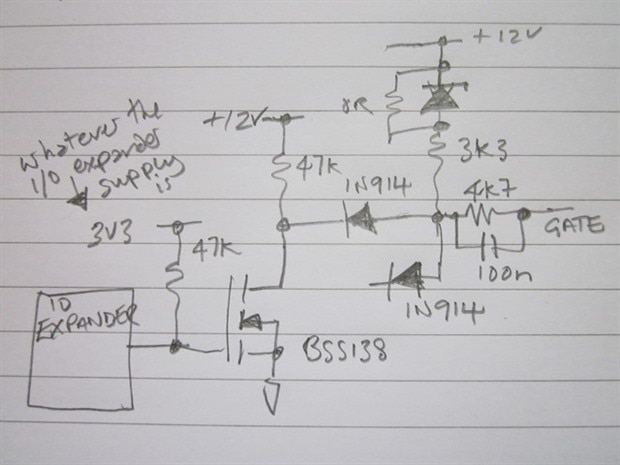 +12V
whatever the
I/O expander
supply
is
+12V
&R
3K3
47K
1N914
4K7
GATE
100n
3V3
47K
1N914
IO
EXPANDER
BSS138